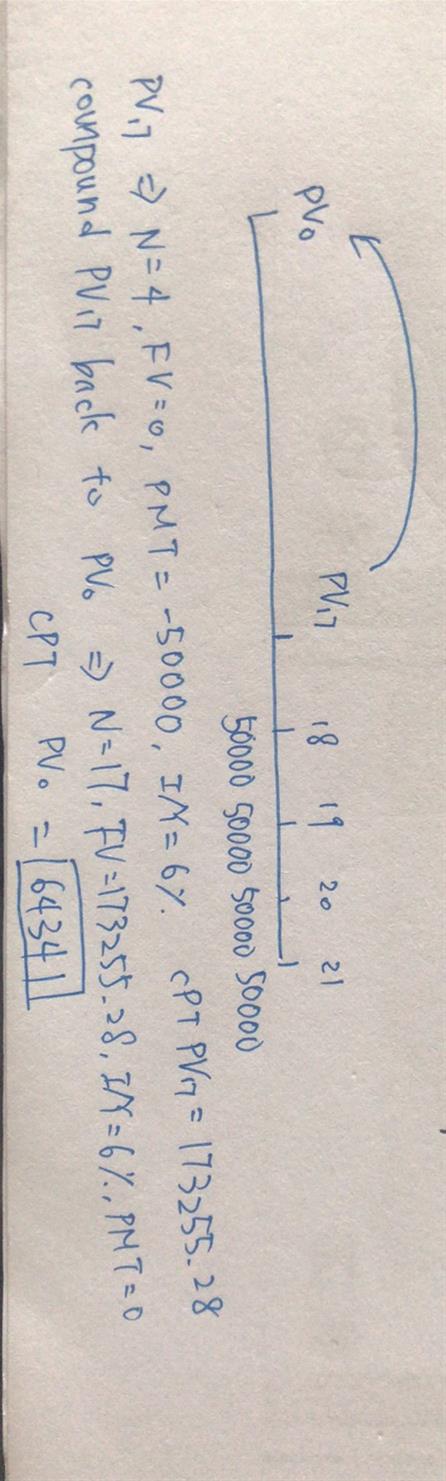 PV₀ PV₁₇ 18 19 20 21
50000 50000 50000 50000
PV₁₇ ⇒ N=4, FV=0, PMT=-50000, I/Y=6%. CPT PV₁₇ = 173255.28
compound PV₁₇ back to PV₀ ⇒ N=17, FV=173255.28, I/Y=6%, PMT=0
CPT PV₀ = 64341